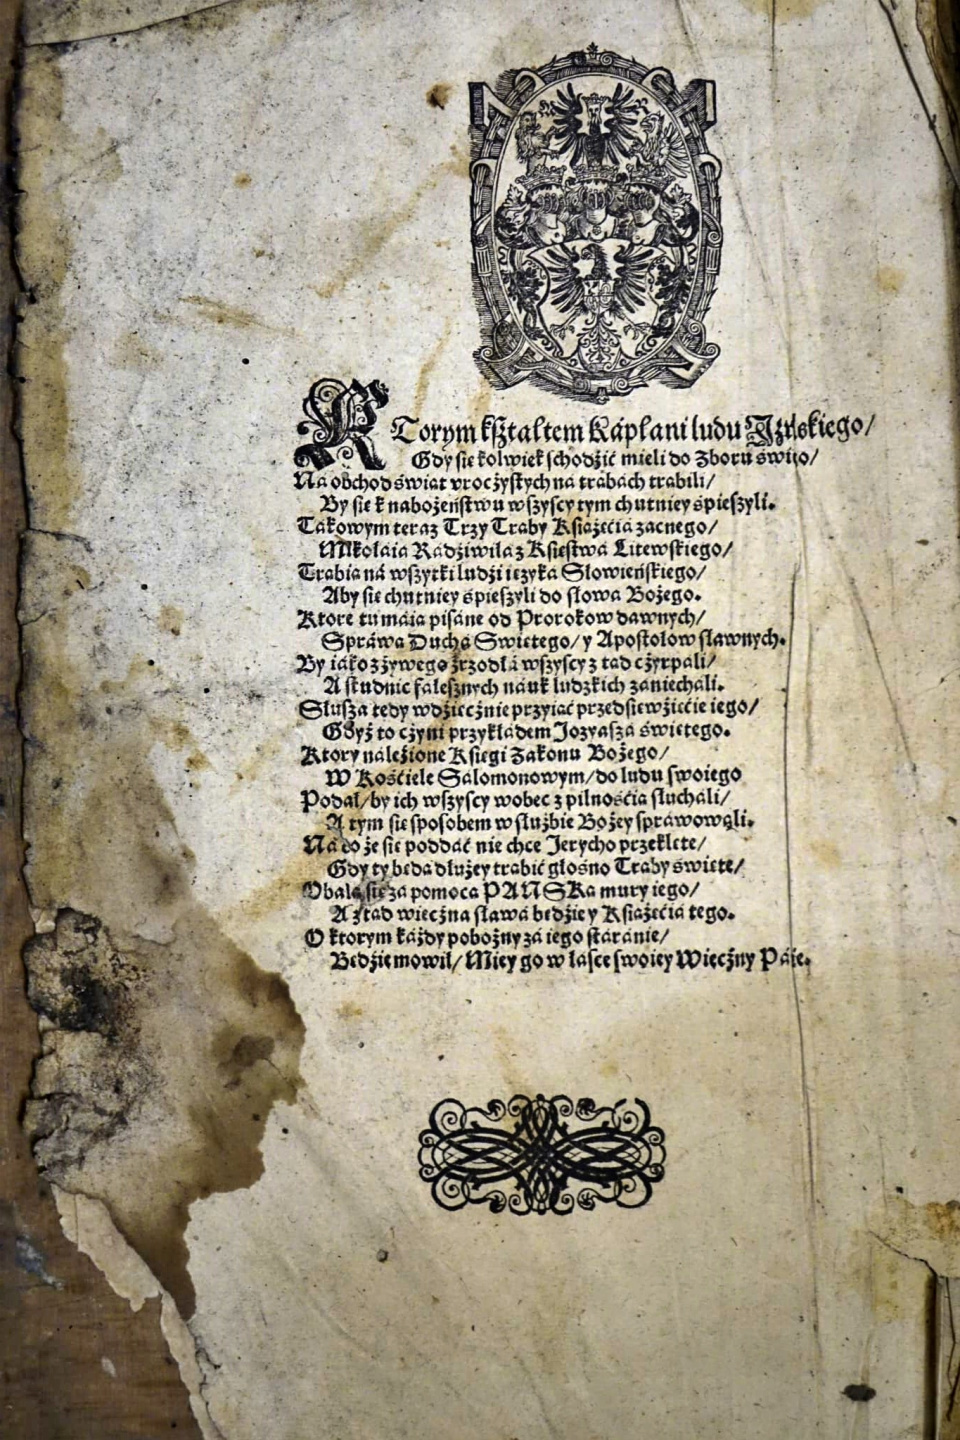 KTorym kształtem Kápłani ludu Izrskiego/
Gdy sie kolwiek schodzić mieli do Zboru świtio/
Na obchod świąt vroczystych na trabach trabili/
By sie k nabożeństwu wszyscy tym chutniey śpieszyli.
Takowym teraz Trzy Traby Książęcia zacnego/
Mikołaia Radziwiłá z Księstwa Litewskiego/
Trabia ná wszytki ludzi ięzyka Słowieńskiego/
Aby się chutniey śpieszyli do słowa Bożego.
Ktore tu máia pisáne od Prorokow dawnych/
Spráwa Duchá Swiętego/ y Apostołow sławnych.
By iáko z żywego źrzodłá wszyscy z tąd czyrpali/
A studnic fałesznych náuk ludzkich zániecháli.
Słusza tedy wdzięcznie przyiąć przedsięwzięcie iego/
Gdyż to czyni przykładem Jozyasza świętego.
Ktory nalezione Księgi Zakonu Bożego/
W Kościele Salomonowym/ do ludu swoiego
Podał/ by ich wszyscy wobec z pilnością słuchali/
A tym się sposobem w służbie Bożey sprawowali.
Ná co że się poddáć nie chce Jerycho przeklęte/
Gdy ty będą dłużey trąbić głośno Trąby święte/
Obalą się zá pomocą PANSKą mury iego/
A ztąd wieczna sława będzie y Książęcia tego.
O ktorym káżdy pobożny zá iego stáránie/
Będzie mowił/ Miey go w łasce swoiey Wieczny Pánie.